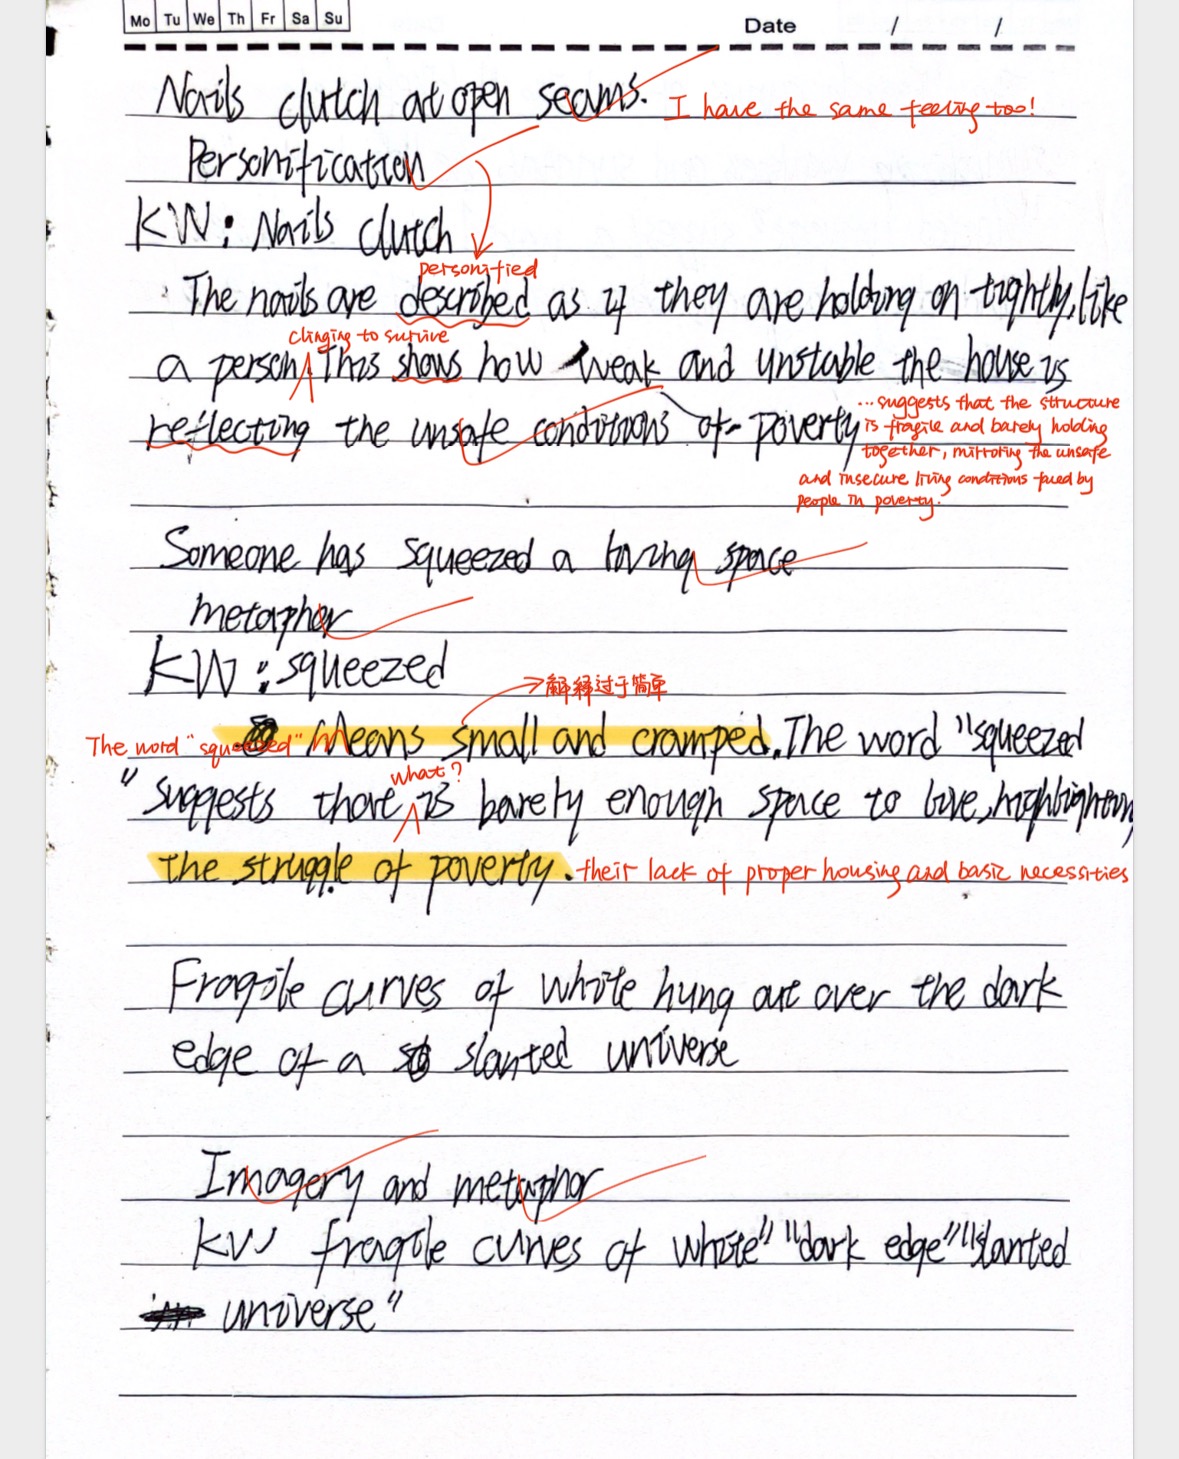 Mo Tu We Th Fr Sa Su
Date / /
Nails clutch at open seams. I have the same feeling too!
Personification
KW: Nails clutch
personified
The nails are described as if they are holding on tightly, like
clinging to survive
a person This shows how weak and unstable the house is
reflecting the unsafe conditions of poverty
...suggests that the structure
is fragile and barely holding
together, mirroring the unsafe
and insecure living conditions faced by
people in poverty.
Someone has squeezed a living space
metaphor
KW: squeezed
解释过于简单
The word "squeezed" Means small and cramped. The word "squeezed
what?
" suggests there is barely enough space to live, highlighting
the struggle of poverty. their lack of proper housing and basic necessities
Fragile curves of white hung out over the dark
edge of a slanted universe
Imagery and metaphor
KW fragile curves of white" "dark edge" "slanted
universe"